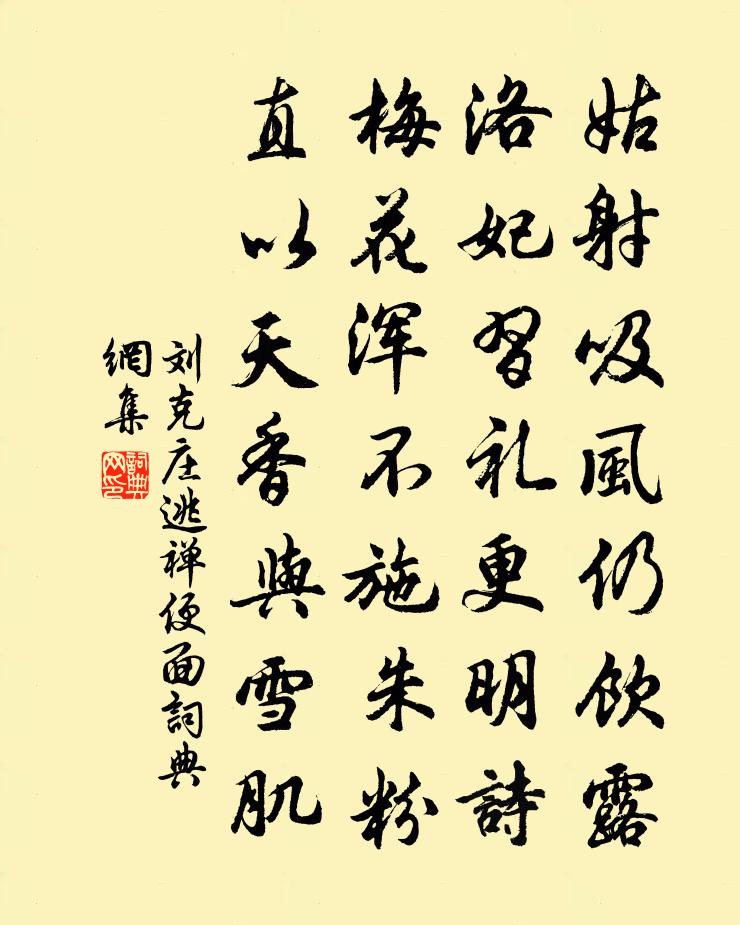 姑射吸風仍飲露
洛妃習礼更明詩
梅花浑不施朱粉
直以天香與雪肌
刘克庄逃禅便面詞典
網集
詞典
网印